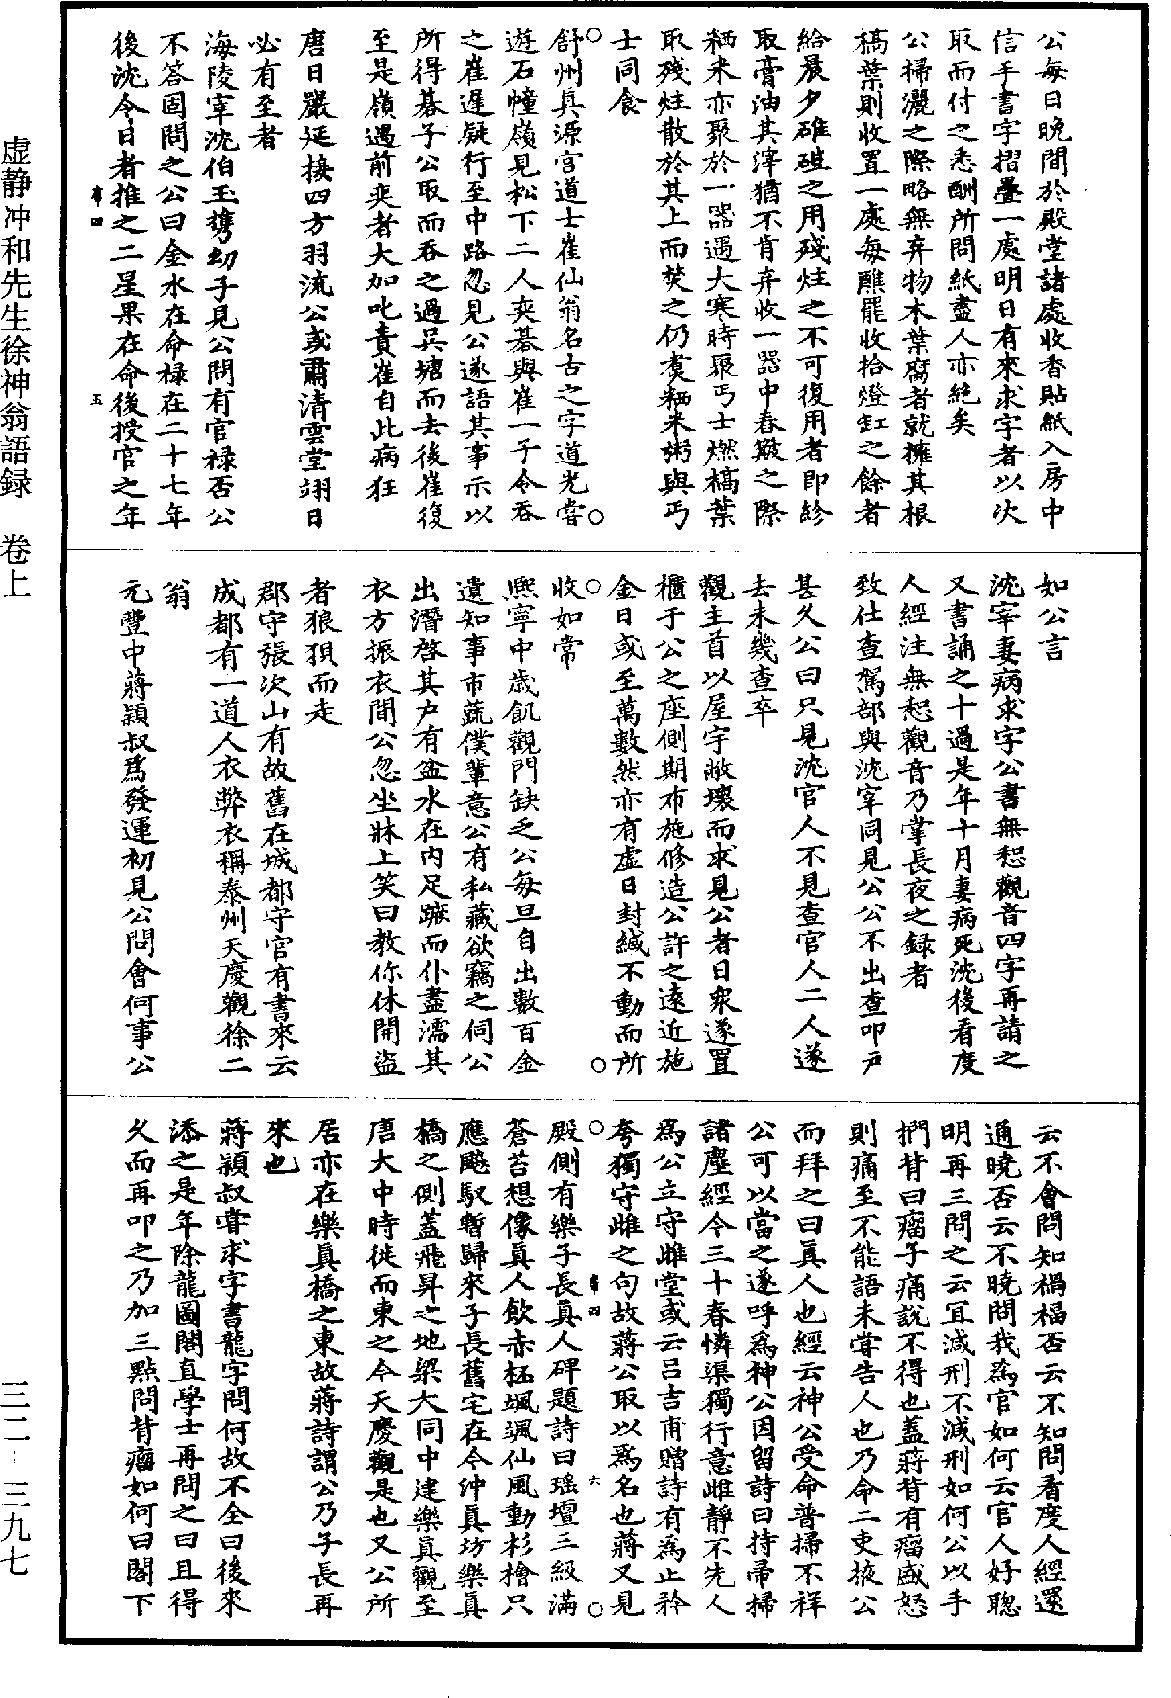 公每日晚間於殿堂諸處收香貼紙入房中
信手書字摺疊一處明日有來求字者以次
取而付之悉酬所問紙盡人亦絕矣
公掃灑之際略無弃物木葉腐者就擁其根
槁葉則收置一處每醮罷收拾燈缸之餘者
給晨夕碓磑之用殘炷之不可復用者即紾
取膏油其滓猶不肯弃收一器中舂簸之際
粞米亦聚於一器遇大寒時聚丐士燃槁葉
取殘炷散於其上而焚之仍煑粞米粥與丐
士同食
舒州真源宮道士崔仙翁名古之字道光甞
遊石幢嶺見松下二人奕碁與崔一子令吞
之崔遲疑行至中路忽見公遂語其事示以
所得碁子公取而吞之過吳塘而去後崔復
至是嶺遇前奕者大加叱責崔自此病狂
唐日嚴延接四方羽流公或肅清雲堂翊日
必有至者
海陵宰沈伯玉攜幼子見公問有官禄否公
不答固問之公曰金水在命禄在二十七年
後沈令日者推之二星果在命後授官之年
如公言
沈宰妻病求字公書無恕觀音四字再請之
又書誦之十過是年十月妻病死沈後看度
人經注無恕觀音乃掌長夜之録者
致仕查駕部與沈宰同見公公不出查叩戶
甚久公曰只見沈官人不見查官人二人遂
去未幾查卒
觀主首以屋宇敝壞而求見公者日衆遂置
櫃于公之座側期布施修造公許之遠近施
金日或至萬數然亦有虛日封緘不動而所
收如常
熙寧中歲飢觀門缺乏公每旦自出數百金
遺知事市蔬僕輩意公有私藏欲竊之伺公
出潛啓其户有盆水在内足蹶而仆盡濡其
衣方振衣間公忽坐牀上笑曰教你休開盜
者狼狽而走
郡守張次山有故舊在城都守官有書來云
成都有一道人衣弊衣稱泰州天慶觀徐二
翁
元豐中蔣穎叔為發運初見公問會何事公
云不會問知禍福否云不知問看度人經還
通曉否云不曉問我為官如何云官人好聰
明再三問之云冝減刑不減刑如何公以手
捫背曰瘤子痛說不得也蓋蔣背有瘤感怒
則痛至不能語未甞告人也乃命二吏掖公
而拜之曰真人也經云神公受命普掃不祥
公可以當之遂呼為神公因留詩曰持帚掃
諸塵經今三十春憐渠獨行意雌靜不先人
為公立守雌堂或云吕吉甫贈詩有為止矜
夸獨守雌之句故蔣公取以為名也蔣又見
殿側有樂子長真人碑題詩曰瑶壇三級滿
蒼苔想像真人飲赤柸颯颯仙風動杉檜只
應飈馭暫歸來子長舊宅在今仲真坊樂真
橋之側蓋飛昇之地梁大同中建樂真觀至
唐大中時徙而東之今天慶觀是也又公所
居亦在樂真橋之東故蔣詩謂公乃子長再
來也
蔣穎叔甞求字書龍字問何故不全曰後來
添之是年除龍圖閣直學士再問之曰且得
久而再叩之乃加三點問背瘤如何曰閣下
虛靜冲和先生徐神翁語録　卷上
三二—三九七
五
六